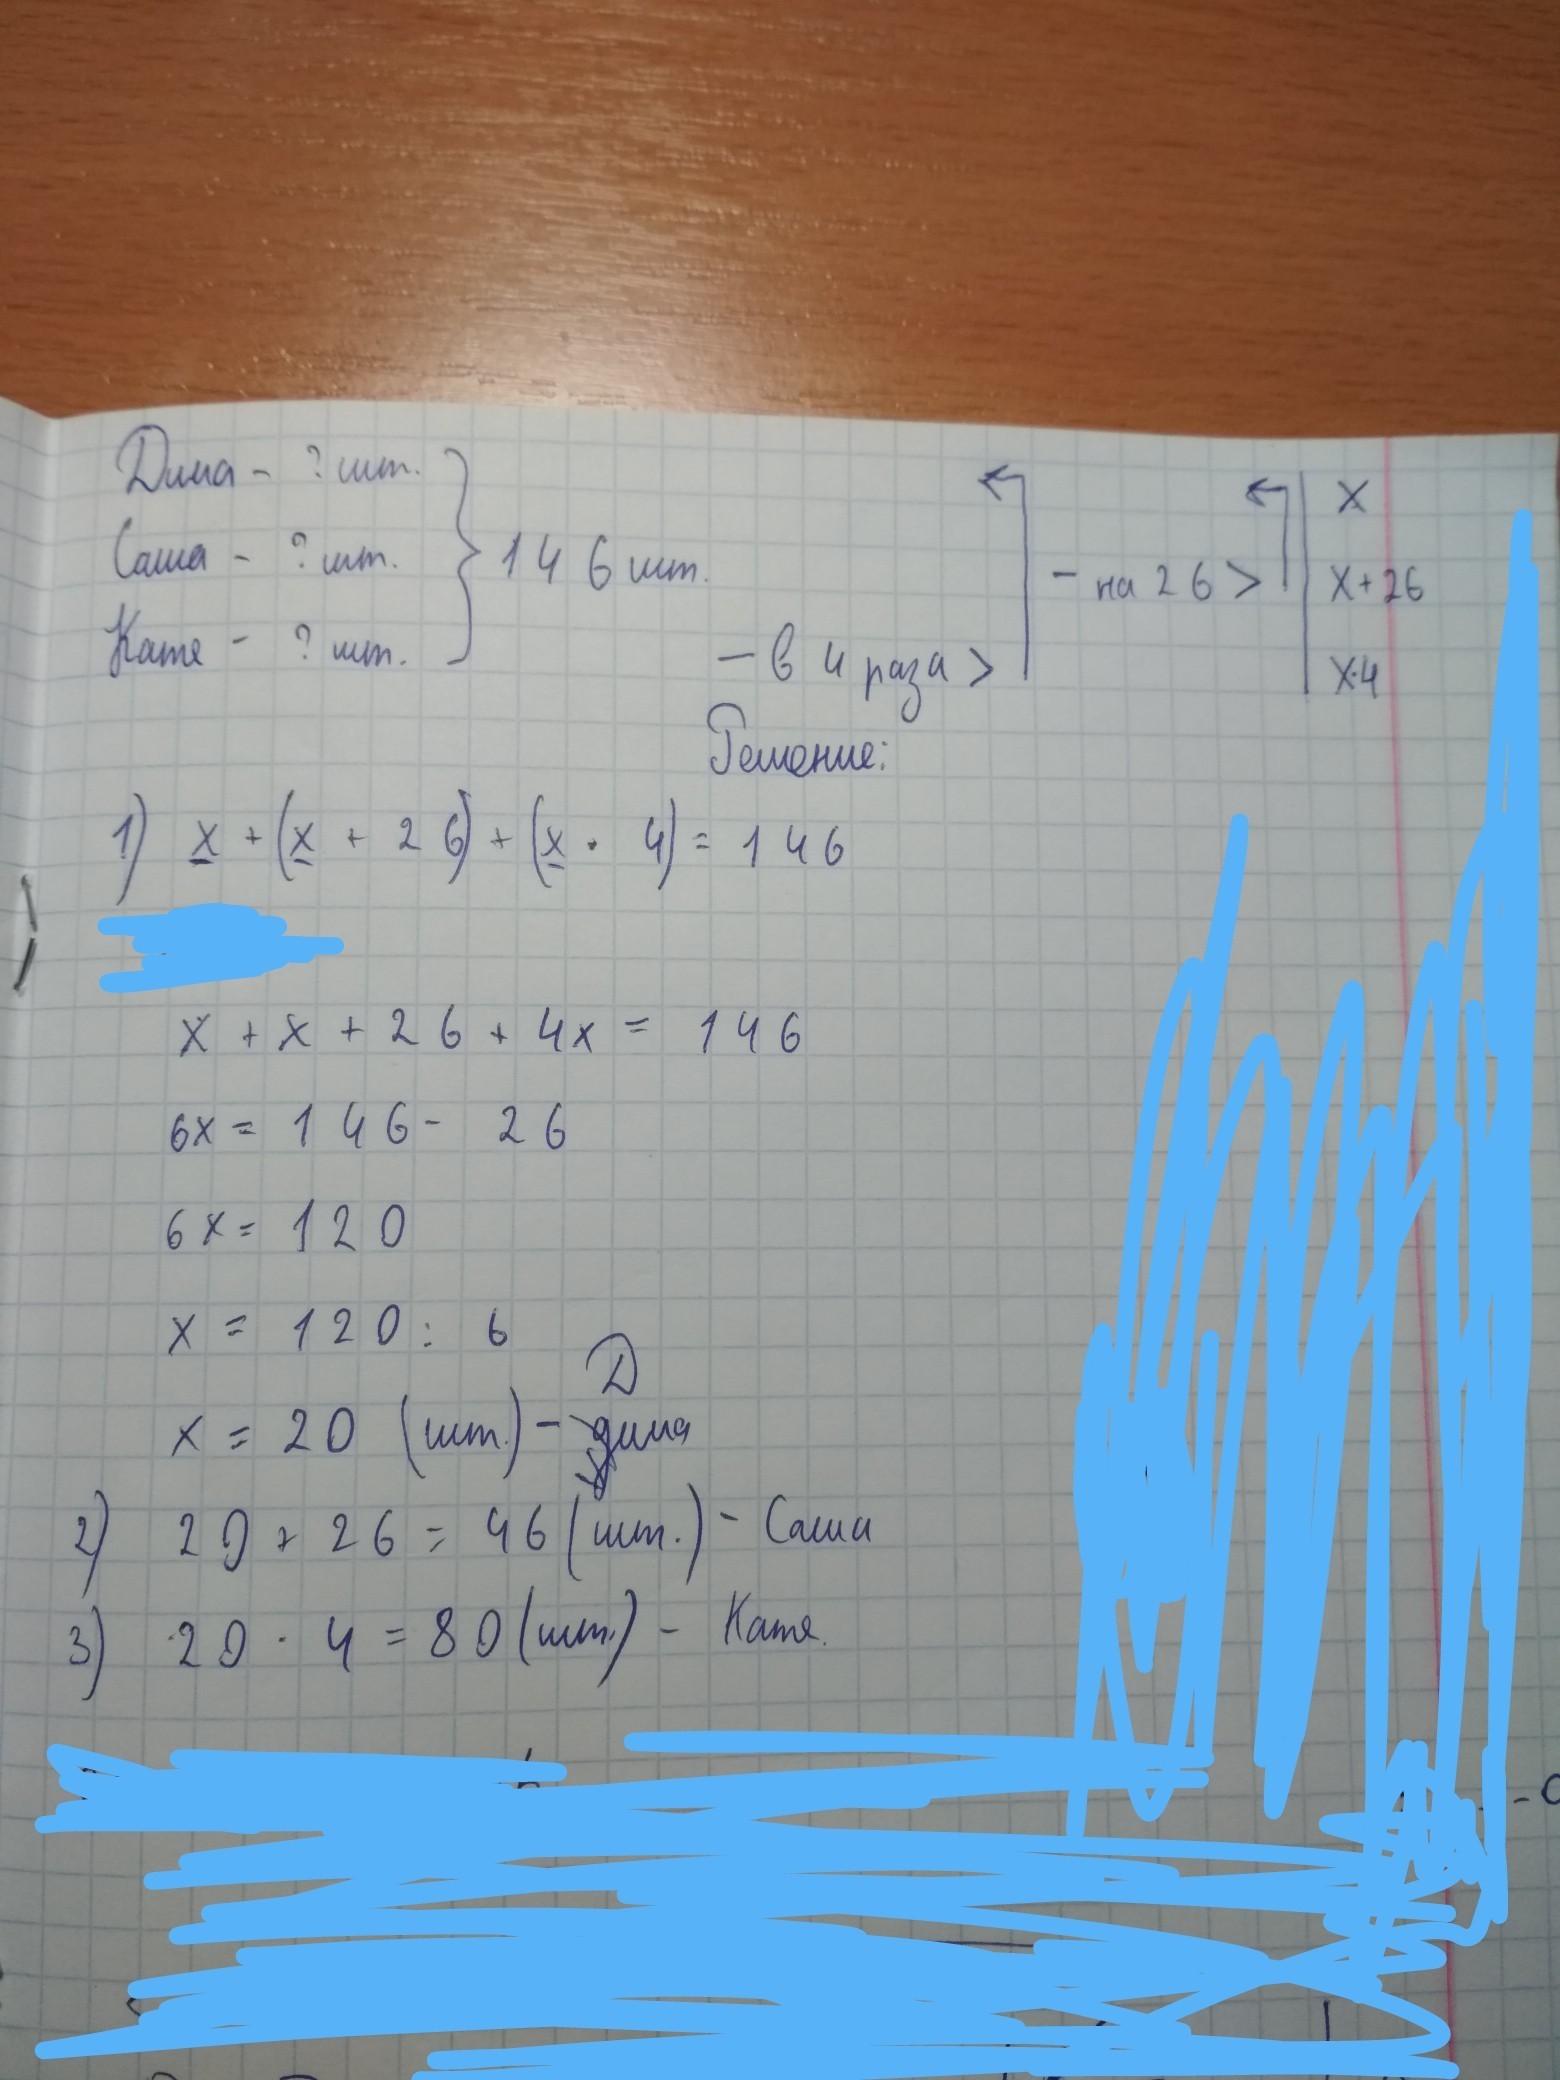 Дима - ? шт.
Саша - ? шт. } 146 шт. - на 26 >
Катя - ? шт. - в 4 раза >
x
x + 26
x·4
Решение:
1) x + (x + 26) + (x · 4) = 146
x + x + 26 + 4x = 146
6x = 146 - 26
6x = 120
x = 120 : 6
Д
x = 20 (шт.) - дима
2) 20 + 26 = 46 (шт.) - Саша
3) 20 · 4 = 80 (шт.) - Катя.